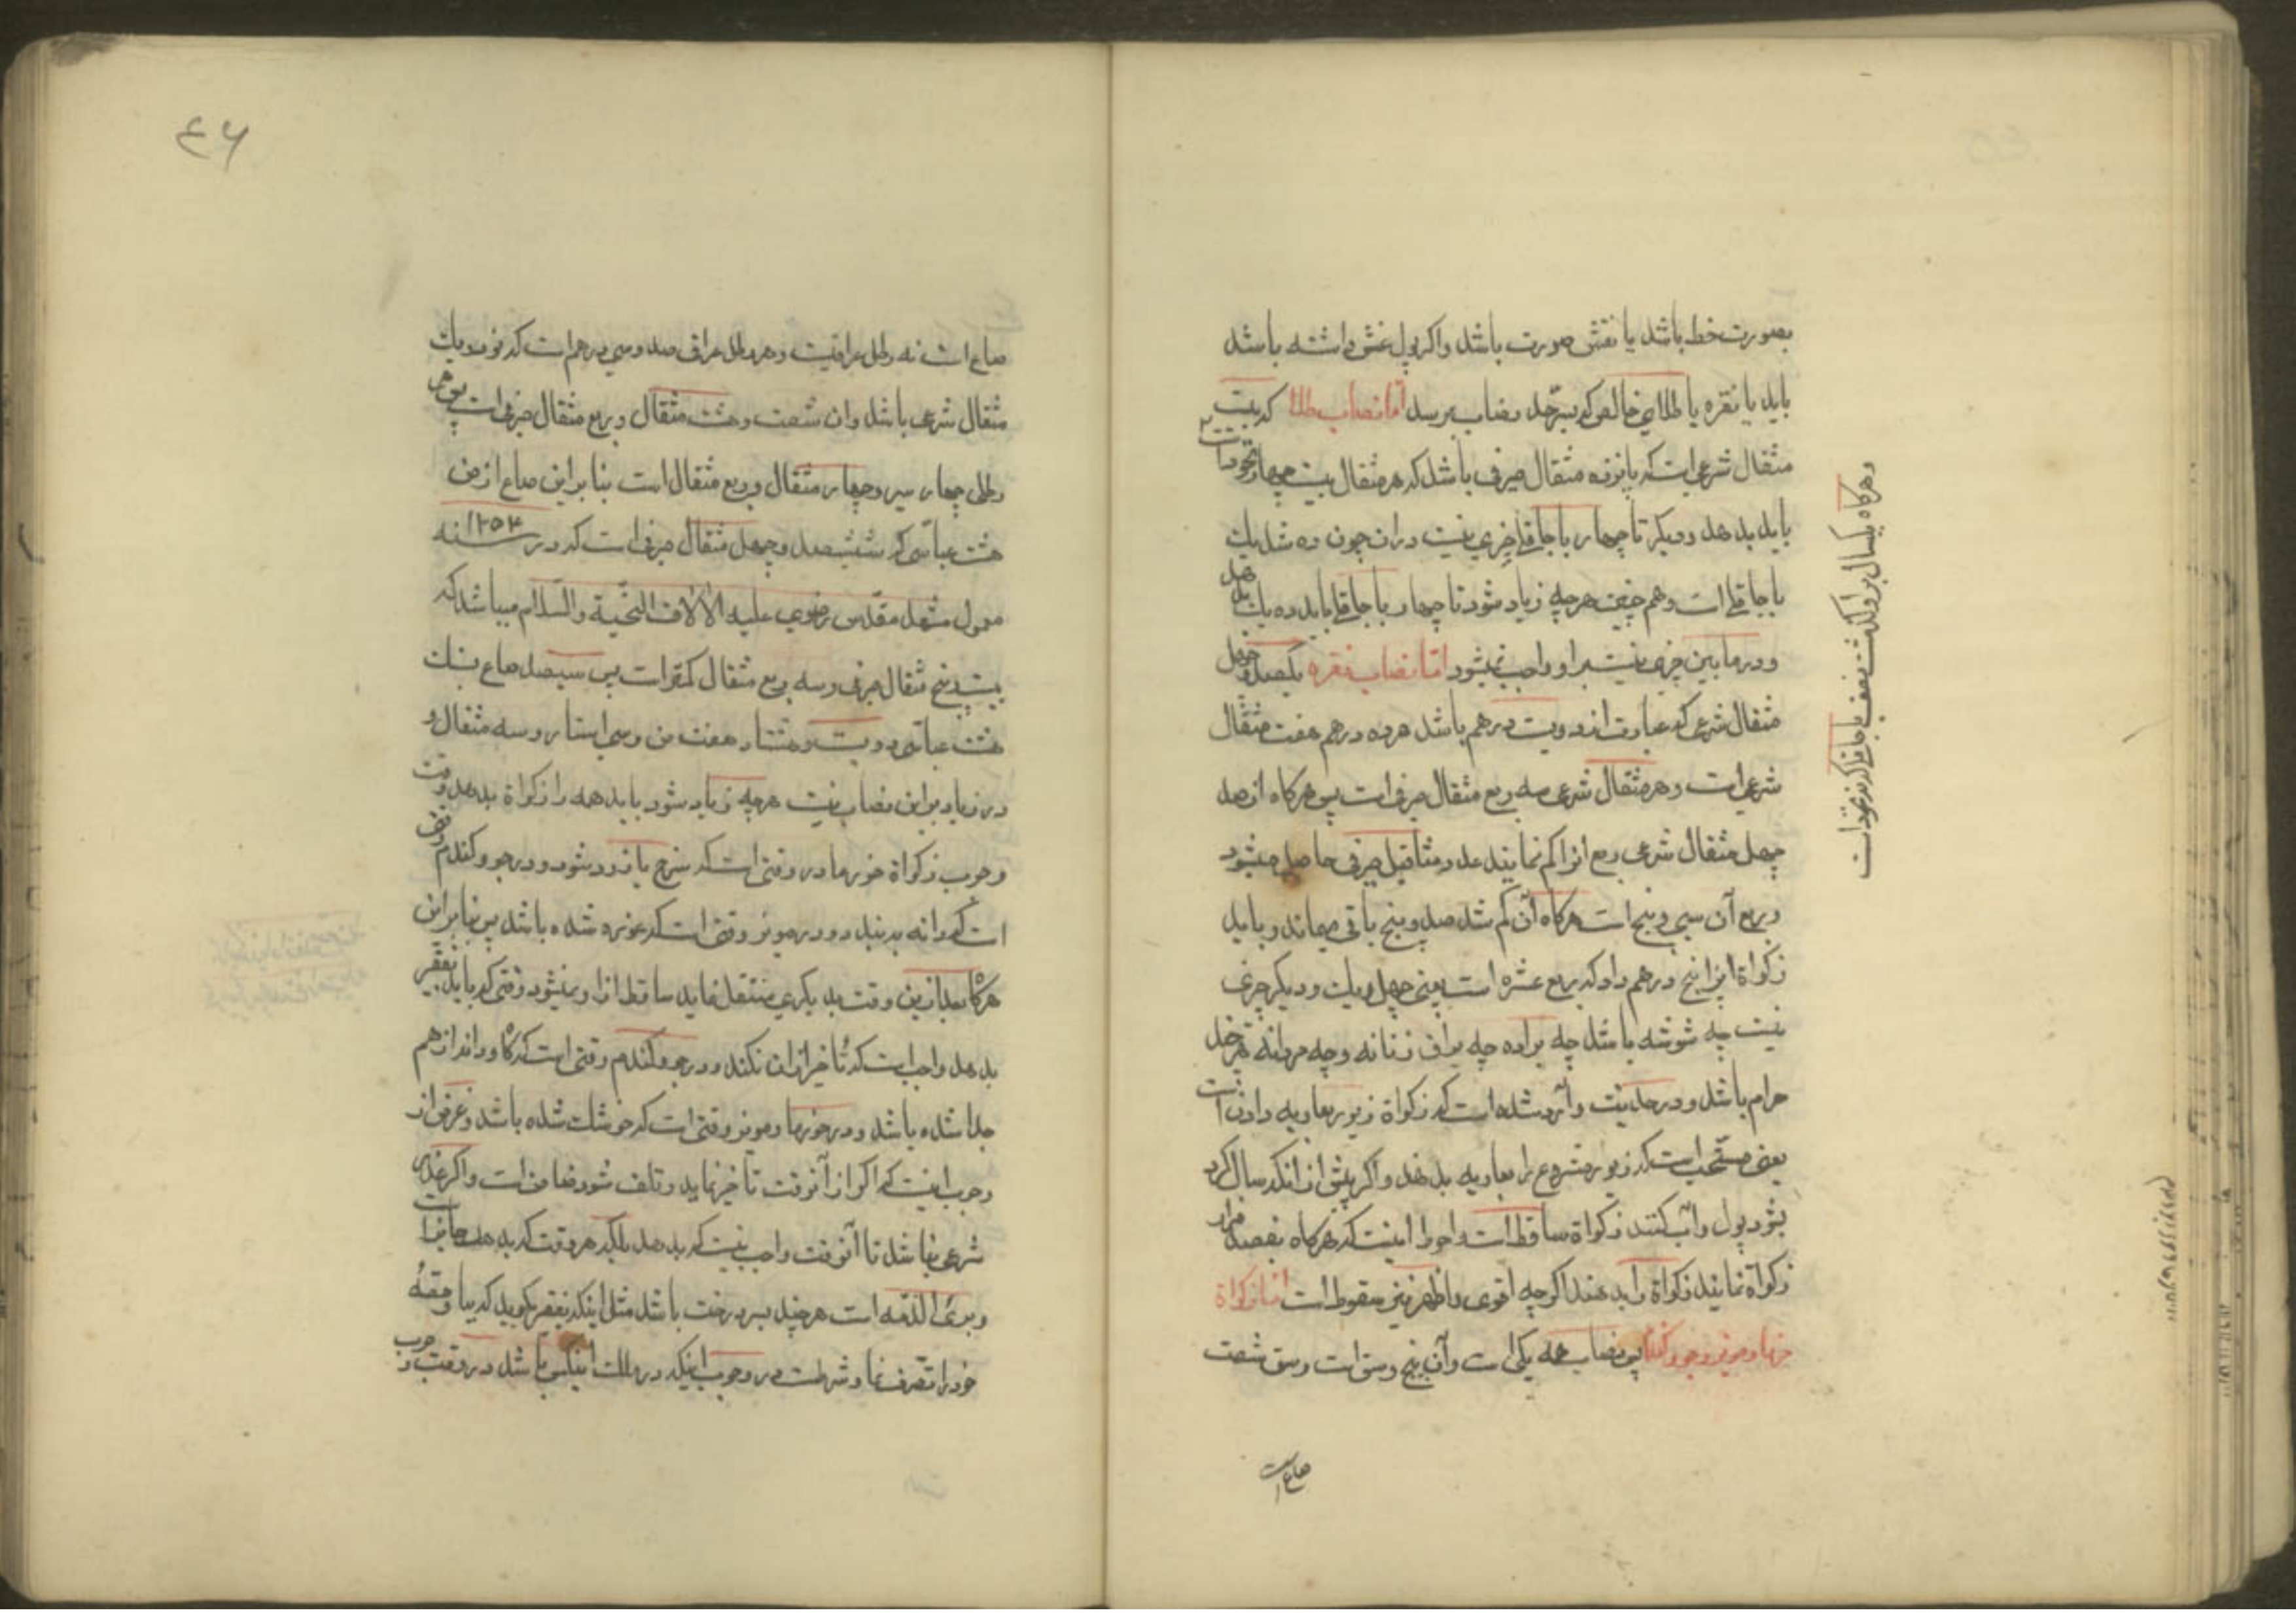 بصورت خط باشد یا نقش صورت باشد واکر پول غش داشته باشد
باید یا نقره یا طلای خالص که بسرحد نصاب برسد اما نصاب طلا که بیست
مثقال شرعی است که پانزده مثقال صیرفی باشد که هر مثقال بیست چهار نخود است
باید بدهد و دیکر تا چهار باجاقلی چیزی نیست در ان چون ده شد یك
باجاقلی است وهم چنین هر چه زیاد شود تا چهار باجاقلی باید ده یك بدهد
و در ما بین چیزی نیست بر او واجب نمیشود اما نصاب نقره یکصد و چهل
مثقال شرعی که عبارت از دویست درهم باشد هر ده درهم هفت مثقال
شرعی است وهر مثقال شرعی سه ربع مثقال صرفی است پس هرکاه از صد
چهل مثقال شرعی ربع انرا کم نمایند عدد مثاقیل صرفی حاصل میشود
و ربع آن سی و پنج است هرکاه آن کم شد صد و پنج باقی میماند و باید
زکواة این را پنج درهم داد که ربع عشره است یعنی چهل و یك و دیکر چیزی
نیست چه شوشه باشد چه براده چه یراق زنانه وچه مردانه هر چند
حرام باشد و در حدیث وارد شده است که زکواة زیور بعاریه دادن است
یعنی مستحب است که زیور مشروع را بعاریه بدهند واکر پیش از انکه سال کرد
بشود پول را آب کنند زکواة ساقط است واحوط اینست که هرکاه بقصد فرار
زکواة نمایند زکواة را بدهند اکرچه اقوی واظهر نیز سقوط است اما زکواة
خرما و مویز و جو و کندم پس نصاب همه یکی است وآن پنج وسق است وسق شصت
صاع است
وهرکاه یکسال بر او کذشت نصف باجاقلی که نه نخود است
٤۶
صاع است نه رطل عراقیست وهر رطل عراقی صد وسی درهم است که نود ویك
مثقال شرعی باشد وان شصت وهشت مثقال و ربع مثقال صرفی است پس هر
رطلی چهار سیر وچهار مثقال و ربع مثقال است بنا براین صاع از من
هشت عباسی که ششصد وچهل مثقال صرفی است که در سنه ۱۲۵۳
معمول مشهد مقدس رضوی علیه الالاف التحیة والسلام میباشد که
بیست و پنج مثقال صرفی و سه ربع مثقال کمتر است پس سیصد صاع بسنك
هشت عباسی دویست وهشتاد هفت من وسی استار و سه مثقال و
در زیاد بر این نصاب نیست هرچه زیاد شود باید همه را زکواة بدهد و وقت
وجوب زکواة خرما در وقتی است که سرخ یا زرد شود و در جو و کندم وقتی
است که دانه به بندد و در مویز وقتی است که غوره شده باشد پس بنا بر این
هرکاه بعد از این وقت بدیکری منتقل نماید ساقط از او نمیشود وقتی که باید بفقیر
بدهد واجب است که تأخیر از ان نکند و در جو وکندم وقتی است که کاه و دانه از هم
جدا شده باشد و در خرما و مویز وقتی است که خوشك شده باشد وغرض از
وجوب اینست که اکر از آنوقت تأخیر نماید و تلف شود ضامن است واکر عذر
شرعی نباشد تا آنوقت واجب نیست که بدهد بلکه هر وقت که بدهد جایز است
و بریٔ الذمه است هرچند بسر درخت باشد مثل اینکه بفقیر بکوید که بیا و حصهٔ
خود را تصرف نما و شرطست در وجوب اینکه در ملك اینکس باشد در وقت وجوب